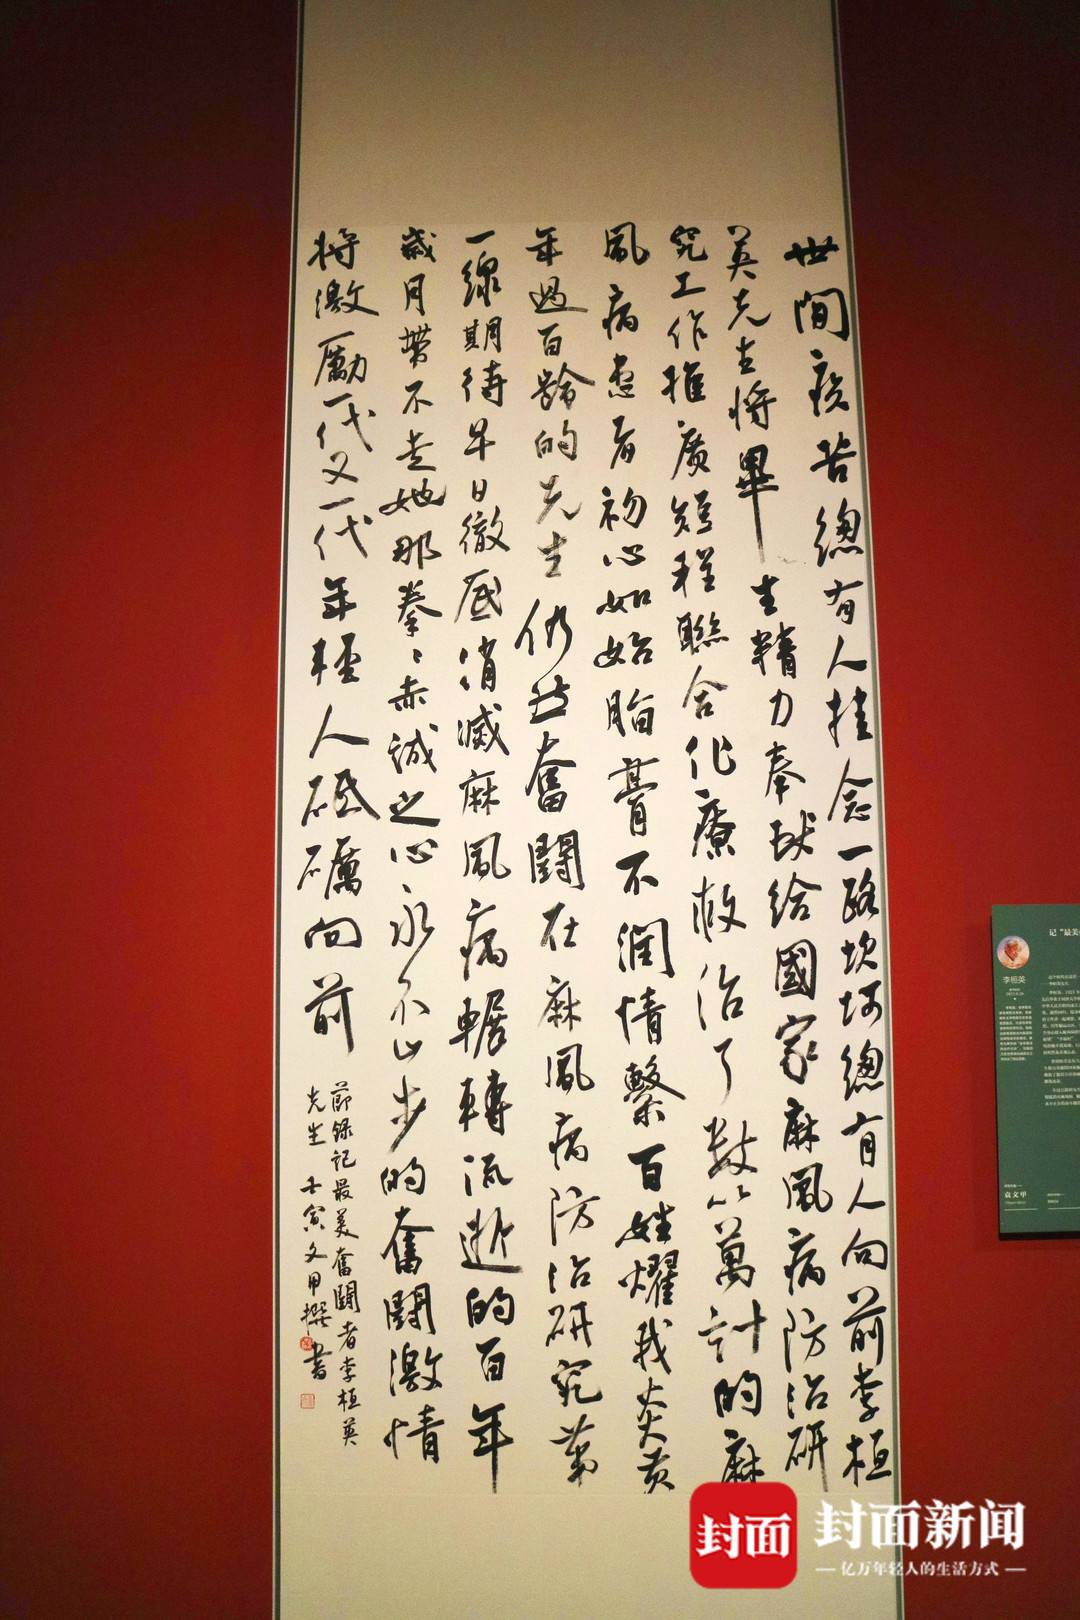 世間疾苦總有人挂念一路坎坷總有人向前李桓
英先生將畢生精力奉獻給國家麻風病防治研
究工作推廣短程聯合化療救治了數以萬計的麻
風病患者初心如始脂膏不潤情繫百姓耀我炎黃
年過百齡的先生仍然奮鬪在麻風病防治研究第
一線期待早日徹底消滅麻風病輾轉流逝的百年
歲月帶不走她那拳〻赤誠之心永不止步的奮鬪激情
將激勵一代又一代年輕人砥礪向前
節錄記最美奮鬪者李桓英
先生 壬寅文甲撰書
記“最美
李桓英
袁文甲
封面
封面新闻
亿万年轻人的生活方式